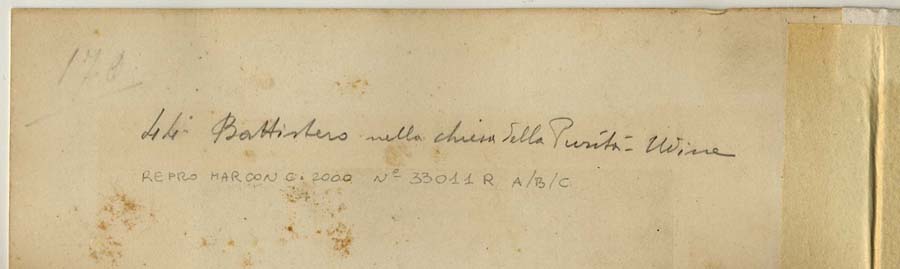 178
44- Battistero nella chiesa della Purità - Udine
REPRO MARCON G. 2000 Nº 33011 R A/B/C